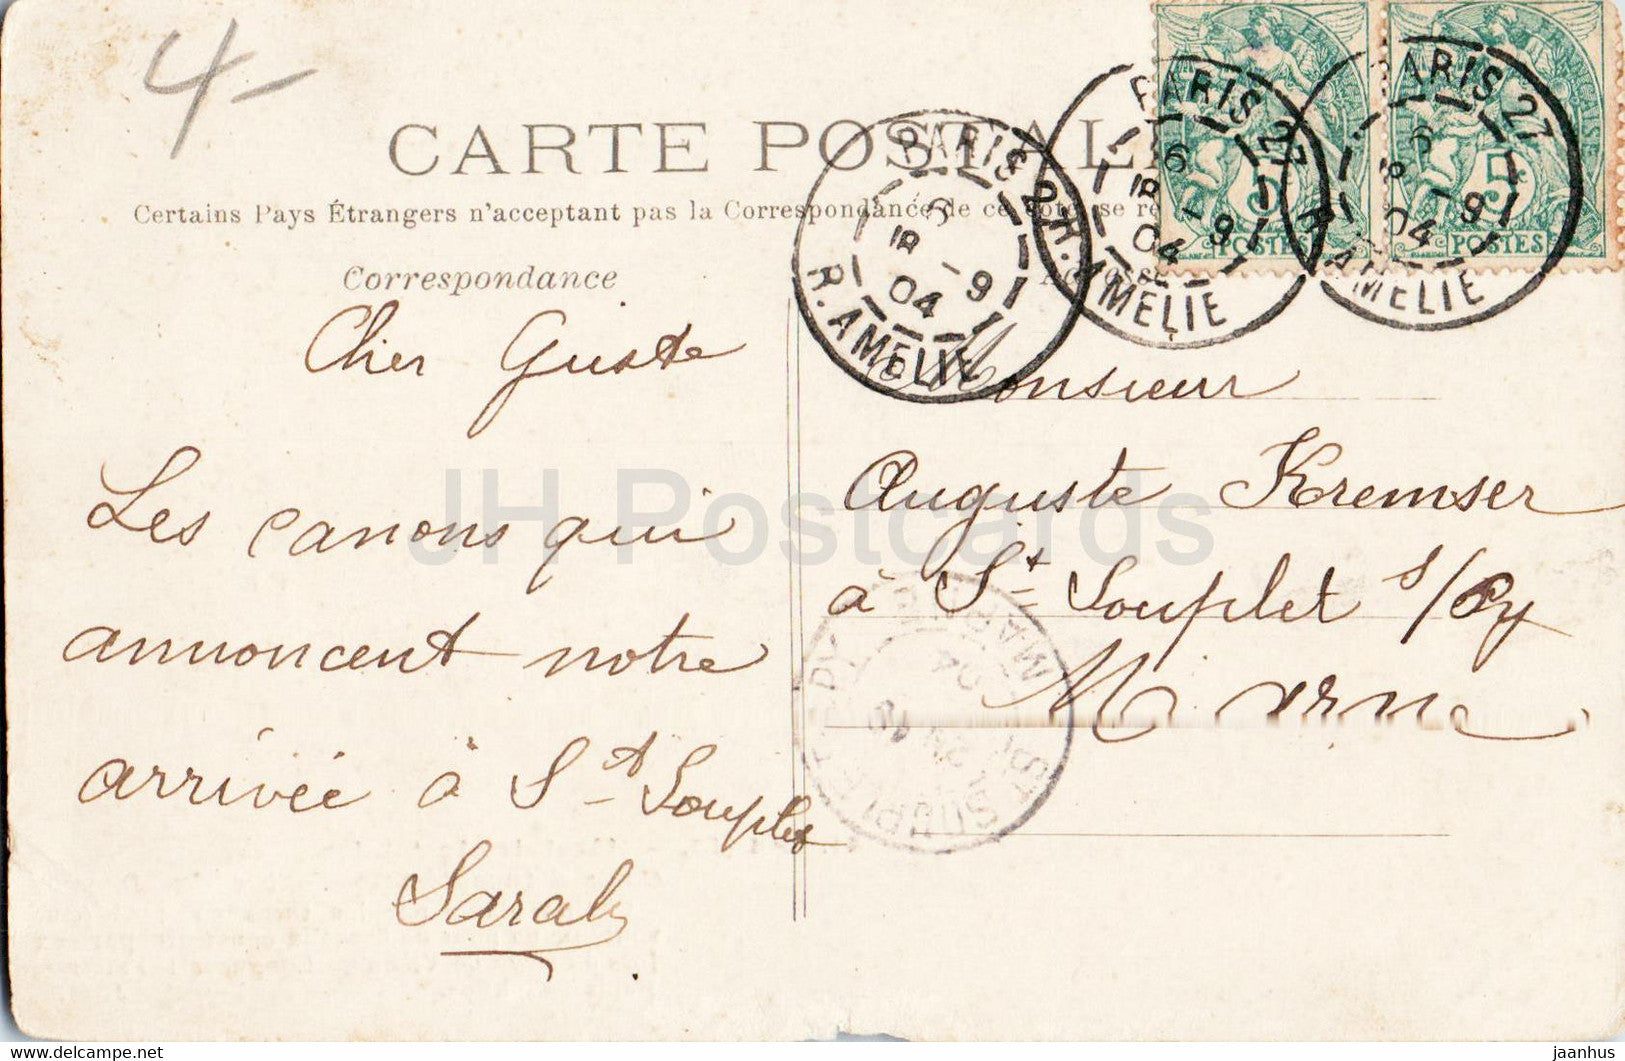 4-
CARTE POSTALE
Certains Pays Étrangers n'acceptant pas la Correspondance de ce côté, se re
Correspondance
Cher Guste
Les canons qui
annoncent notre
arrivée à St Souplet
Sarah
Monsieur
Auguste Kremser
à St Souplet s/Py
Marne
PARIS 27
6
18 -9
04
R. AMELIE
PARIS 27
6
18 -9
04
R. AMELIE
PARIS 27
6
18 -9
04
R. AMELIE
5
POSTES
5
POSTES
MARNE
JH Postcards
jaanhus@yahoo.com
jaanhus